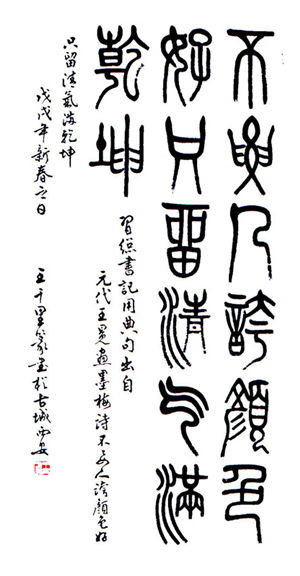 不要人誇顏色
好只留清气滿
乾坤
習總書記用典句出自
元代王冕畫墨梅詩不要人誇顏色好
只留清氣滿乾坤
戊戌年新春之日
王千里篆書於古城西安